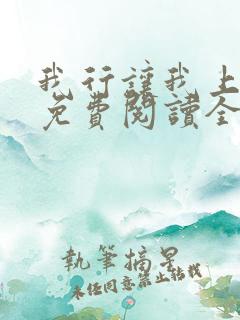 我行讓我上
免費閱讀全
執筆摘星
未經同意禁止轉載